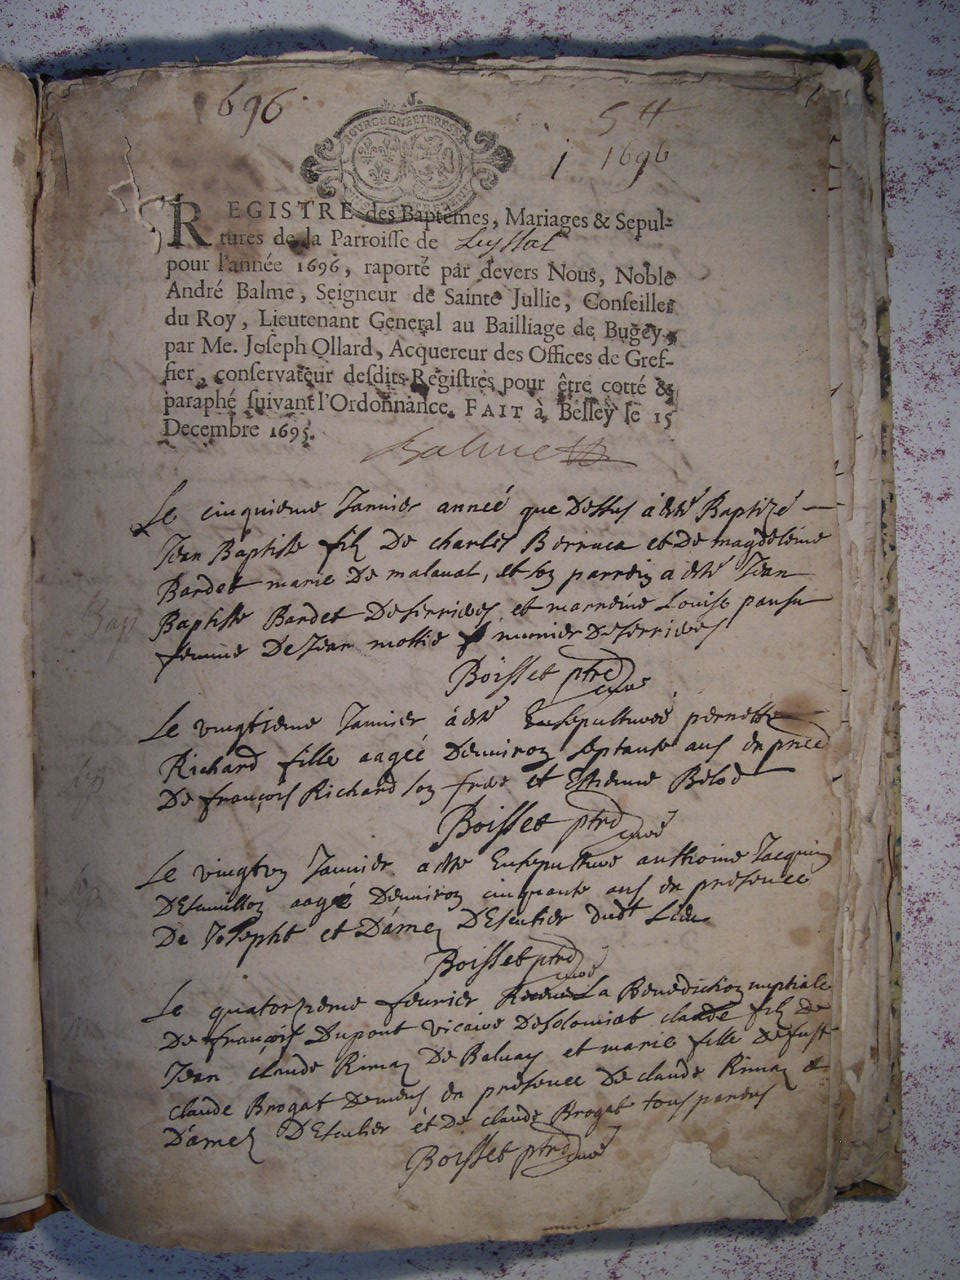 696
54
1 1696
REGISTRE des Baptêmes, Mariages & Sepul-
tures de la Parroisse de Leyssat
pour l'année 1696, raporté par devers Nous, Noble
André Balme, Seigneur de Sainte Jullie, Conseiller
du Roy, Lieutenant General au Bailliage de Bugey,
par Me. Joseph Ollard, Acquereur des Offices de Gref-
fier, conservateur desdits Registres pour être cotté &
paraphé suivant l'Ordonnance. FAIT à Belley le 15
Decembre 1695.
Balme
Le cinquieme Janvier année que Dessus à esté Baptizé
Jean Baptiste filz De charles et De magdeleine
Bardet marié De malaval, et son parrein a esté Jean
Baptiste Bardet De serrieres et marreine Louise
femme De Jean munier De serrieres
Boisset ptre curé
Le vingtieme Janvier à esté Ensepulturée pernette
Richard fille aagée Denviron septante ans en pnce
De françois Richard son frere et Estienne
Boisset ptre curé
Le Janvier a esté Ensepulturé anthoine Jacquin
aagé Denviron cinquante ans en presence
De Joseph et Damez Descutier dudt Lieu
Boisset ptre curé
Le quatorzieme fevrier La Benediction nuptiale
De françois Dupont vicaire De solomiat claude filz de
Jean claude De Balvay et marie fille De fust
claude Brogat en presence De claude et
Damez Descutier et De claude Brogat tous parens
Boisset ptre curé